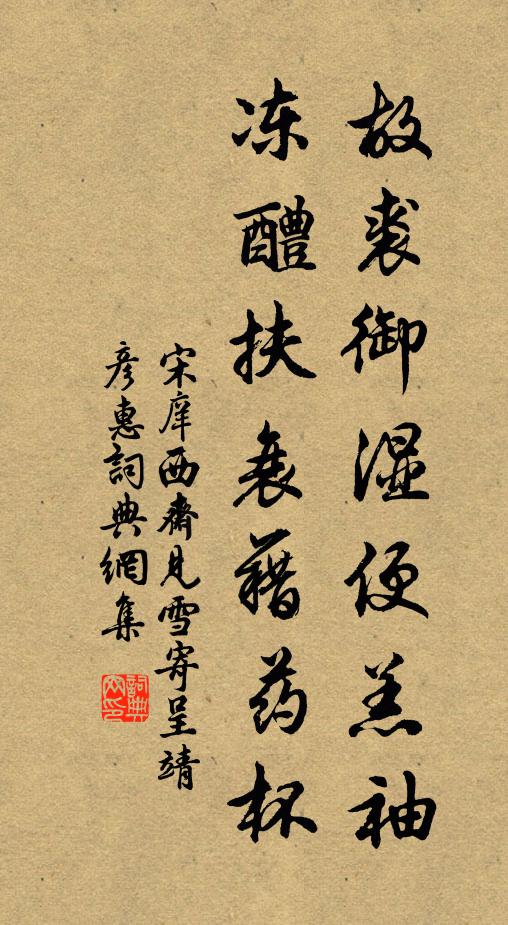 故裘御湿便羔袖
冻醴扶衰藉药杯
宋庠西齋見雪寄呈靖
彦惠詞典網集
詞典